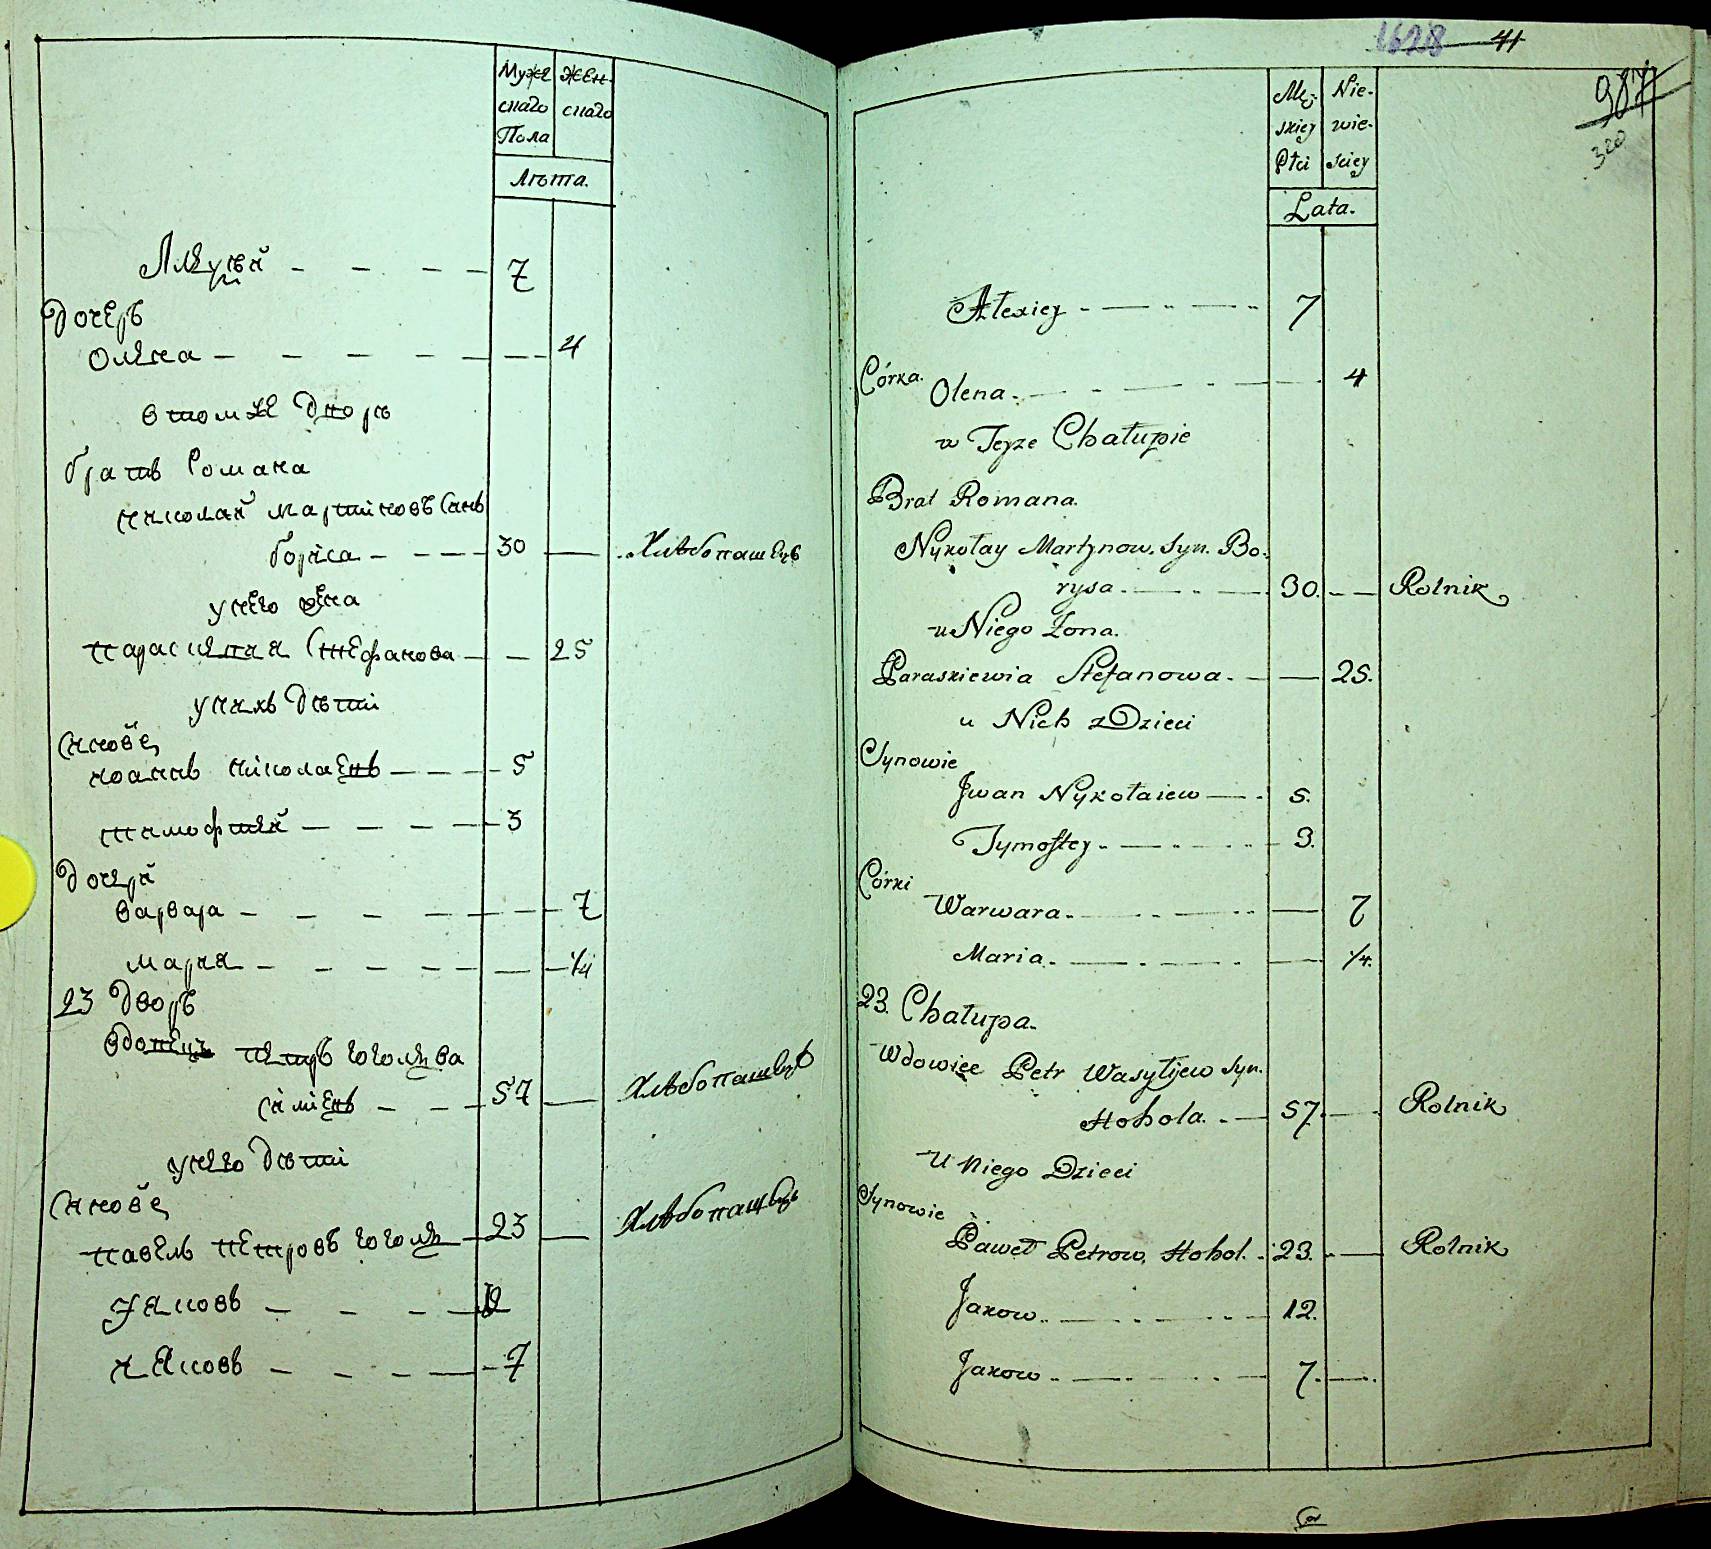 Муже Жен-
скаго скаго
Пола
Лѣта.
Алеѯѣй 7
Дочеръ
Олена 4
в томже дворѣ
братъ Романа
николай мартиновъ Синъ
бориса 30 Хлѣбопашецъ
унего жена
параскевия Стефанова 25
унихъ дѣти
Синовѣ
иоаннъ николаевъ 5
тимофтей 3
Дочери
варвара 7
мария 1/4
23 Дворъ
вдовецъ петръ гоголева
57 Хлѣбопашецъ
унего дѣти
Синовѣ
павелъ петровъ гоголь 23 Хлѣбопашецъ
Яковъ 12
Яковъ 7
1628 41
987
320
Mę- Nie-
skiey wie-
Płci sciey
Lata.
Alexiey 7
Córka.
Olena. 4
w Teyze Chałupie
Brat Romana.
Nykołay Martynow. Syn. Bo-
rysa 30. Rolnik
u Niego Zona.
Paraskiewia Stefanowa. 25.
u Nich z Dzieci
Synowie
Jwan Nykołaiew 5.
Tymoftey 3.
Córki
Warwara. 7
Maria. 1/4.
23. Chałupa.
Wdowiec Petr Wasyljew Syn.
Hohola. 57. Rolnik
U niego Dzieci
Synowie
Paweł Petrow, Hohol. 23. Rolnik
Jakow. 12.
Jakow 7.